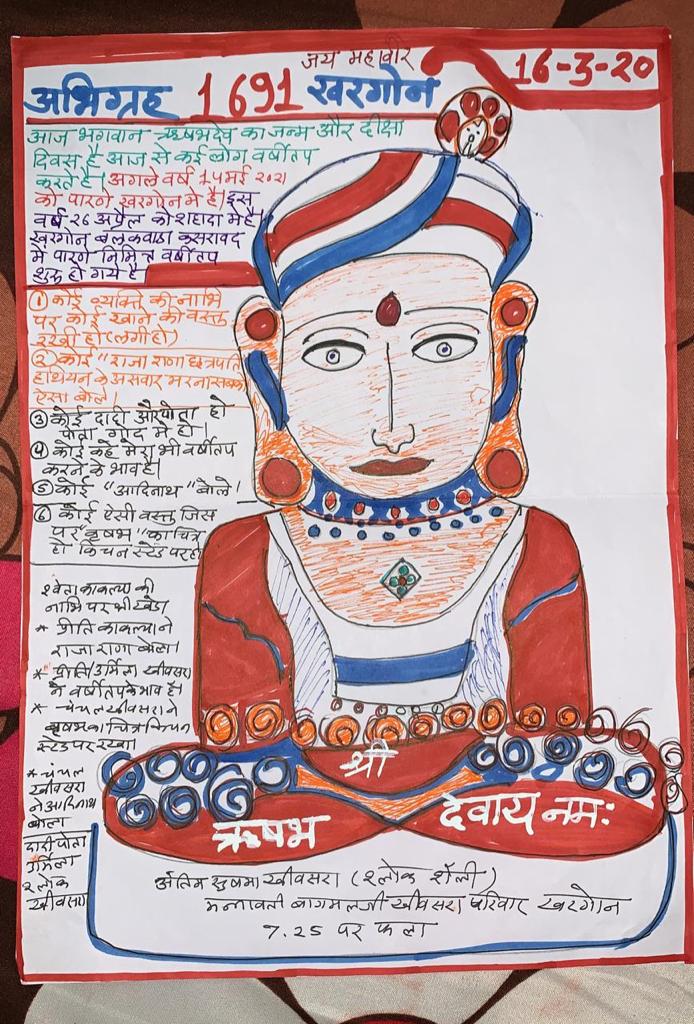 जय महावीर
16-3-20
अभिग्रह 1691 खरगोन
आज भगवान ऋषभदेव का जन्म और दीक्षा
दिवस है आज से कई लोग वर्षीतप
करते है। अगले वर्ष 14 मई 2021
को पारणे खरगोन मे है। इस
वर्ष 26 अप्रैल को शहादा मे है।
खरगोन बलकवाडा कसरावद
मे पारणे निमित्त वर्षीतप
शुरू हो गये है
① कोई व्यक्ति की नाभि
पर कोई खाने की वस्तु
रखी हो (लगी हो)
② कोई "राजा राणा छत्रपति
हाथियन के असवार मरना सबको
ऐसा बोले।
③ कोई दादी और पोता हो
पोता गोद मे हो।
④ कोई कहे मेरा भी वर्षीतप
करने के भाव है।
⑤ कोई "आदिनाथ" बोले।
⑥ कोई ऐसी वस्तु जिस
पर "वृषभ" का चित्र
हो किचन स्टेंड पर हो
श्वेता काकल्या की
नाभि पर भी
* प्रीति काकल्या ने
राजा राणा बोला।
* प्रीति/उर्मिला खीवसरा
के वर्षीतप के भाव है।
* चंचल खीवसरा ने
वृषभ का चित्र किचन
स्टेंड पर रखा।
* चंचल
खीवसरा
ने आदिनाथ
बोला
दादी पोता
उर्मिला
श्लोक
खीवसरा
श्री
ऋषभ देवाय नमः
अंतिम सुषमा खीवसरा (श्लोक शैली)
बागमलजी खीवसरा परिवार खरगोन
7.25 पर फला